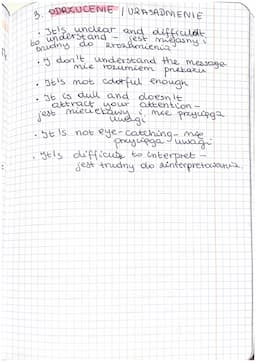 3. ODRZUCENIE / UZASADNIENIE
• It's unclear and difficult
to understand - jest niejasny i
trudny do zrozumienia
• I don't understand the message
nie rozumiem przekazu
• It's not colorful enough
• It is dull and doesn't
attract your attention -
jest nieciekawy i nie przyciąga
uwagi
• It is not eye-catching - nie
przyciąga uwagi
• It's difficult to interpret -
jest trudny do zinterpretowania